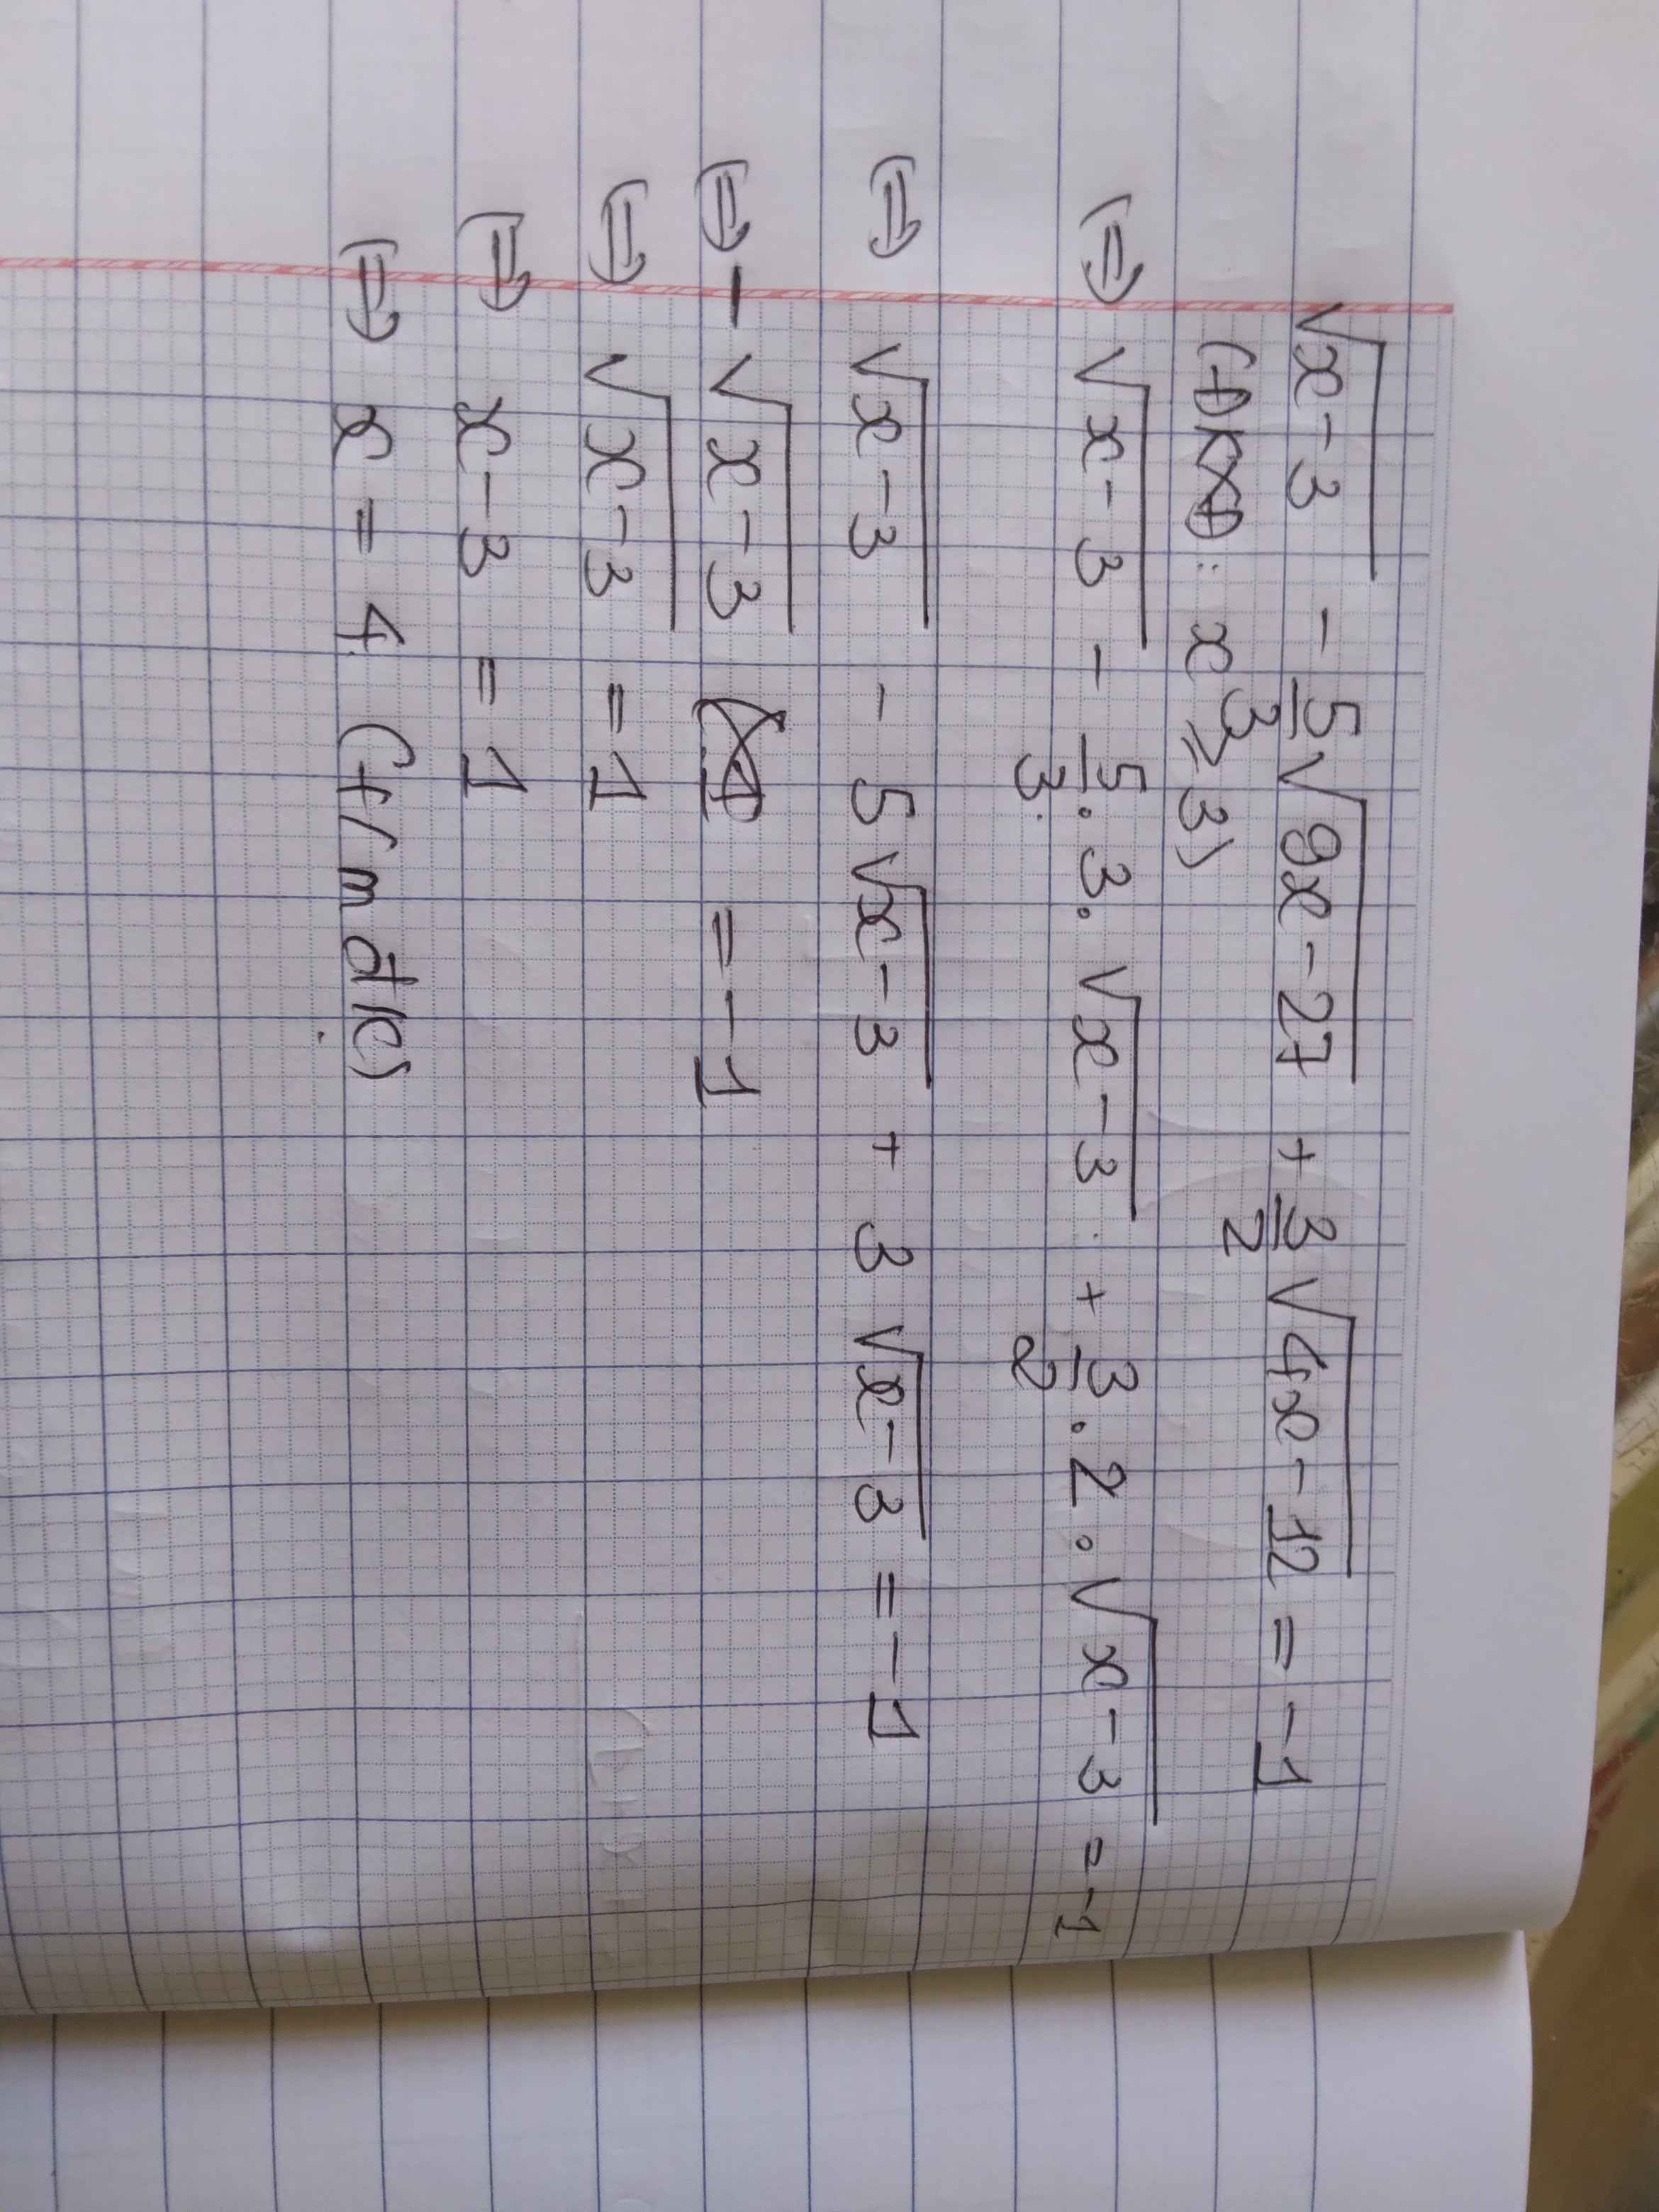 √x-3 - 5/3 √9x-27 + 3/2 √4x-12 = -1
: x ≥ 3)
⇔ √x-3 - 5/3 . 3 . √x-3 + 3/2 . 2 . √x-3 = -1
⇔ √x-3 - 5√x-3 + 3√x-3 = -1
⇔ -√x-3 = -1
⇔ √x-3 = 1
⇔ x-3 = 1
⇔ x = 4 (t/m đk)